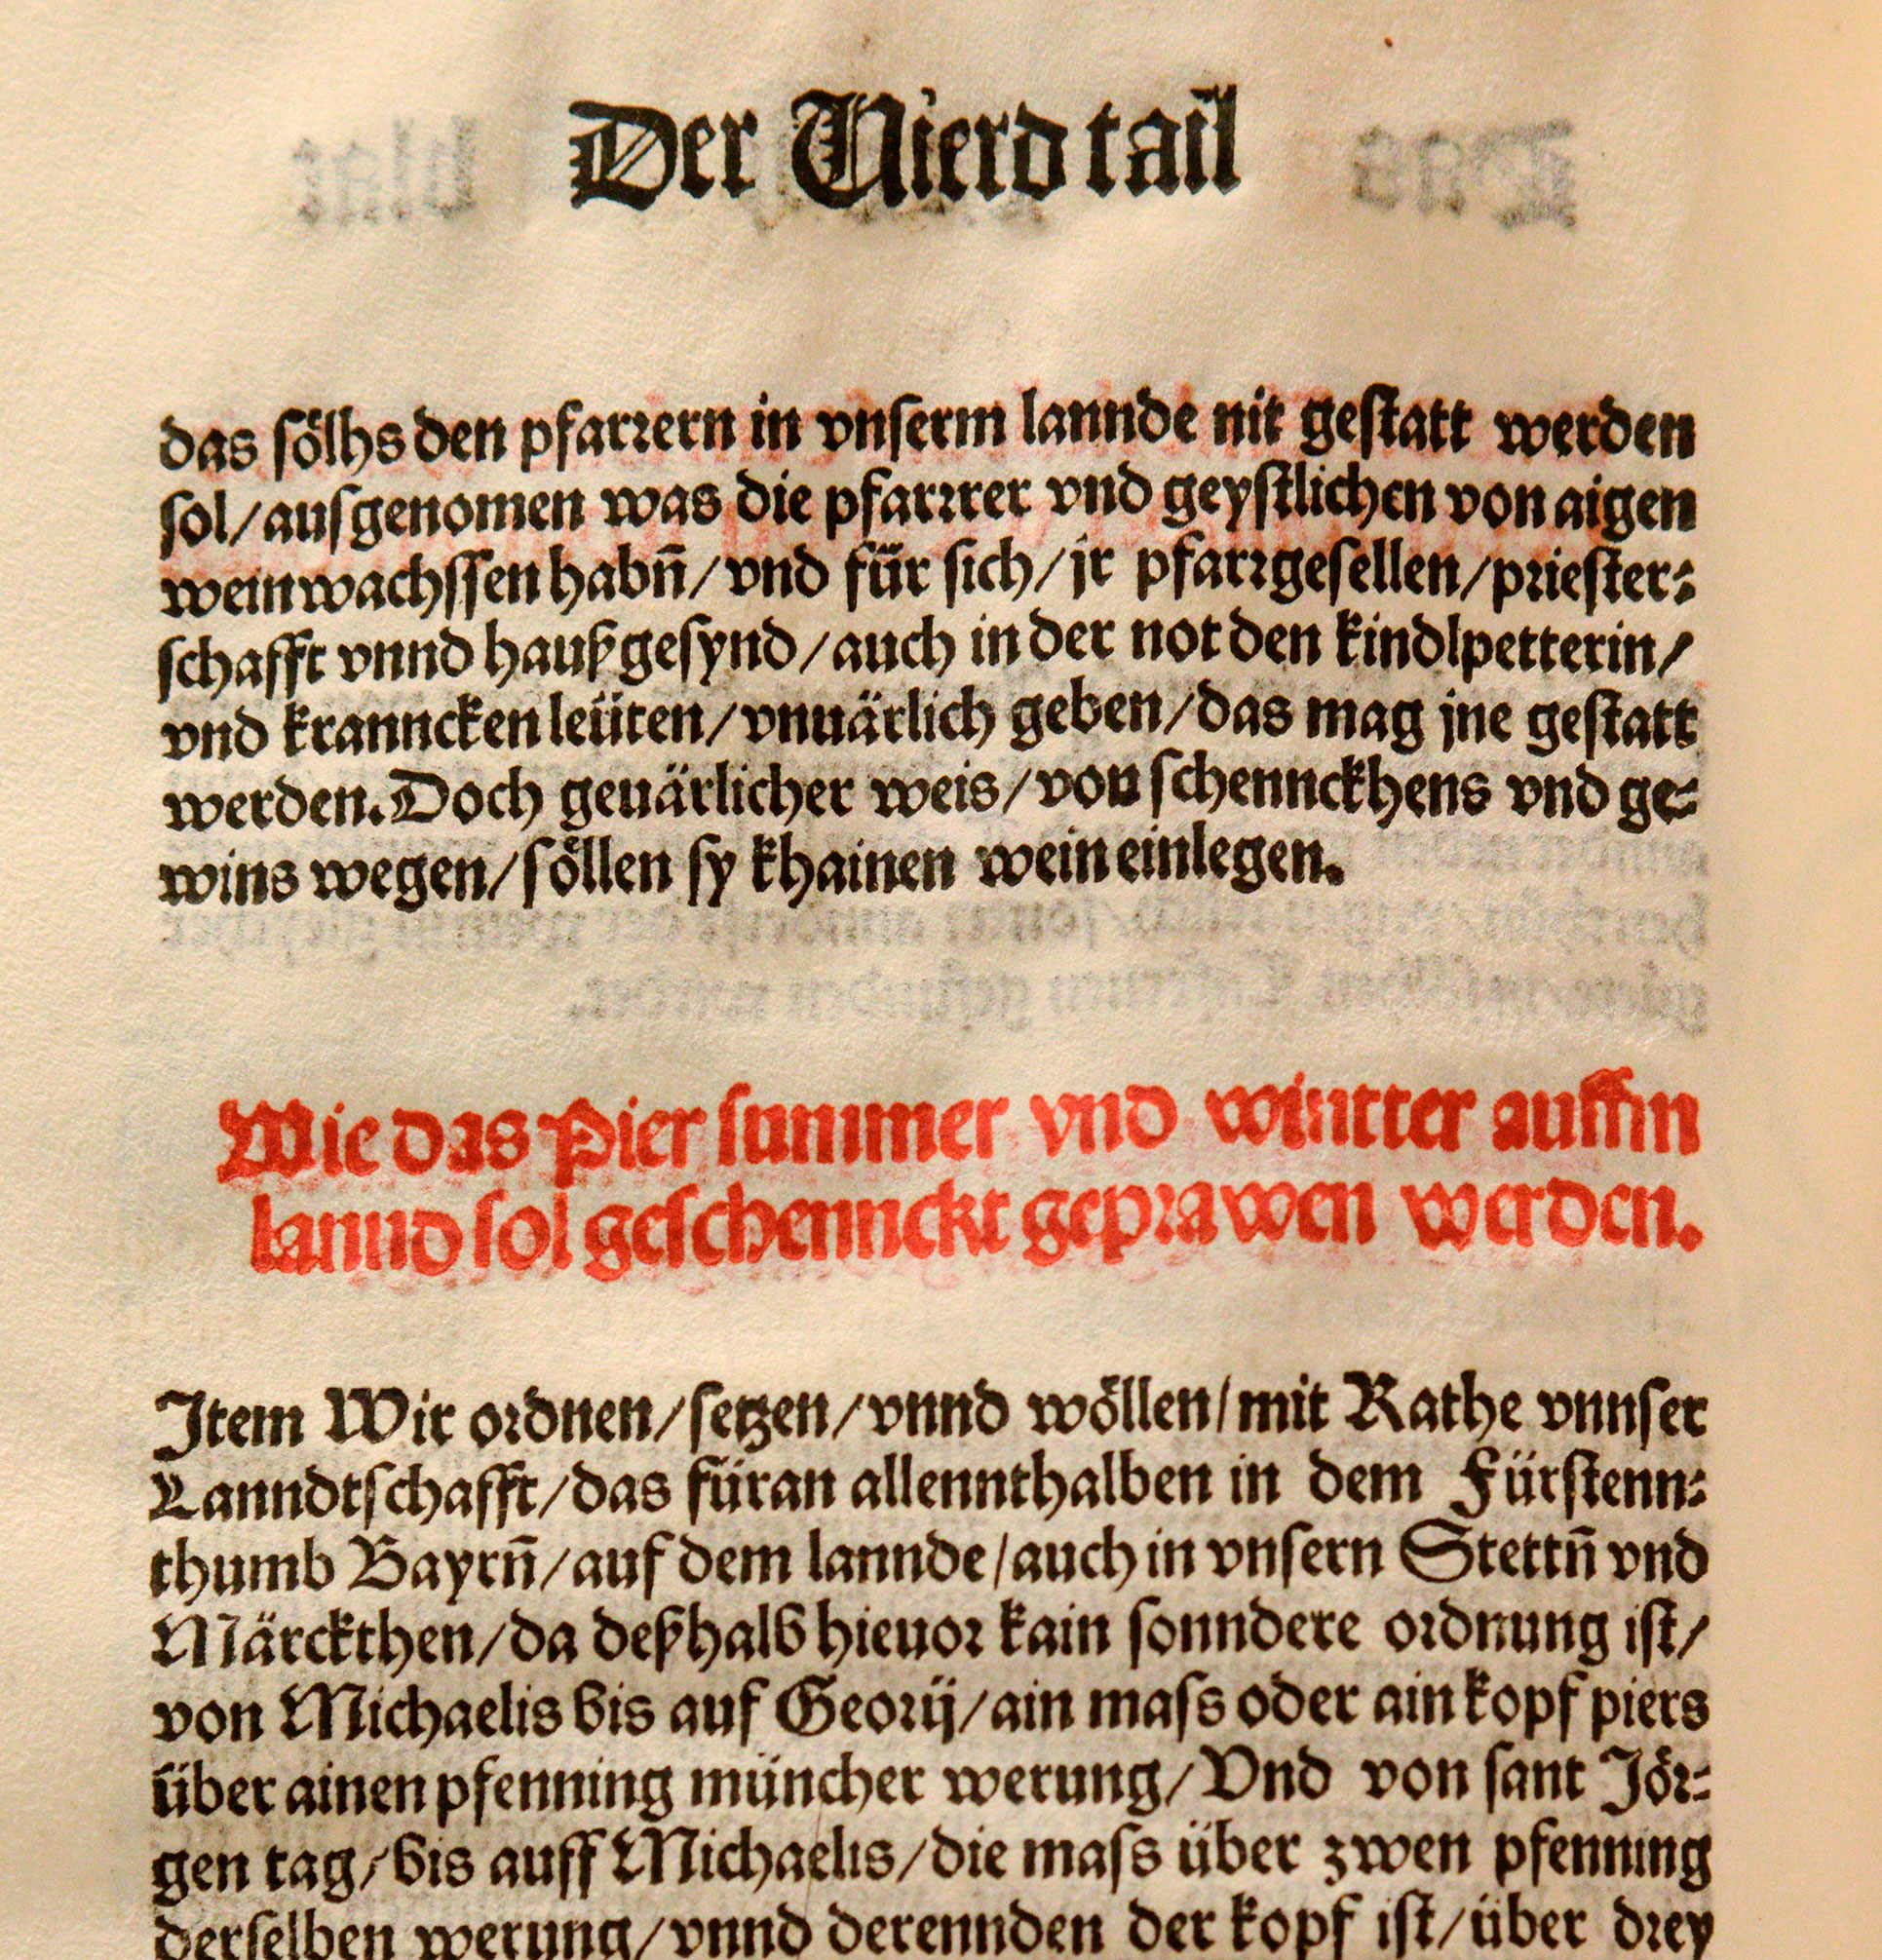 Der Vierd tail
das sölhs den pfarrern in vnserm lannde nit gestatt werden
sol/ausgenomen was die pfarrrer vnd geystlichen von aigen
weinwachssen habn̄/vnd für sich/jr pfarrgesellen/priester⸗
schafft vnnd haußgesynd/auch in der not den kindlpetterin/
vnd kranncken leüten/vnuärlich geben/das mag jne gestatt
werden. Doch geuärlicher weis/von schennckhens vnd ge⸗
wins wegen/söllen sy khainen wein einlegen.
Wie das Pier summer vnd winntter auffm
lannd sol geschennckt geprawen werden.
Item Wir ordnen/setzen/vnnd wöllen/mit Rathe vnnser
Lanndtschafft/das füran allennthalben in dem Fürstenn⸗
thumb Bayrn̄/auf dem lannde/auch in vnsern Stettn̄ vnd
Märckthen/da deßhalb hieuor kain sonndere ordnung ist/
von Michaelis bis auf Georij/ain mass oder ain kopf piers
über ainen pfenning müncher werung/Vnd von sant Jör⸗
gen tag/bis auff Michaelis/die mass über zwen pfenning
derselben werung/vnnd derennden der kopf ist/über drey